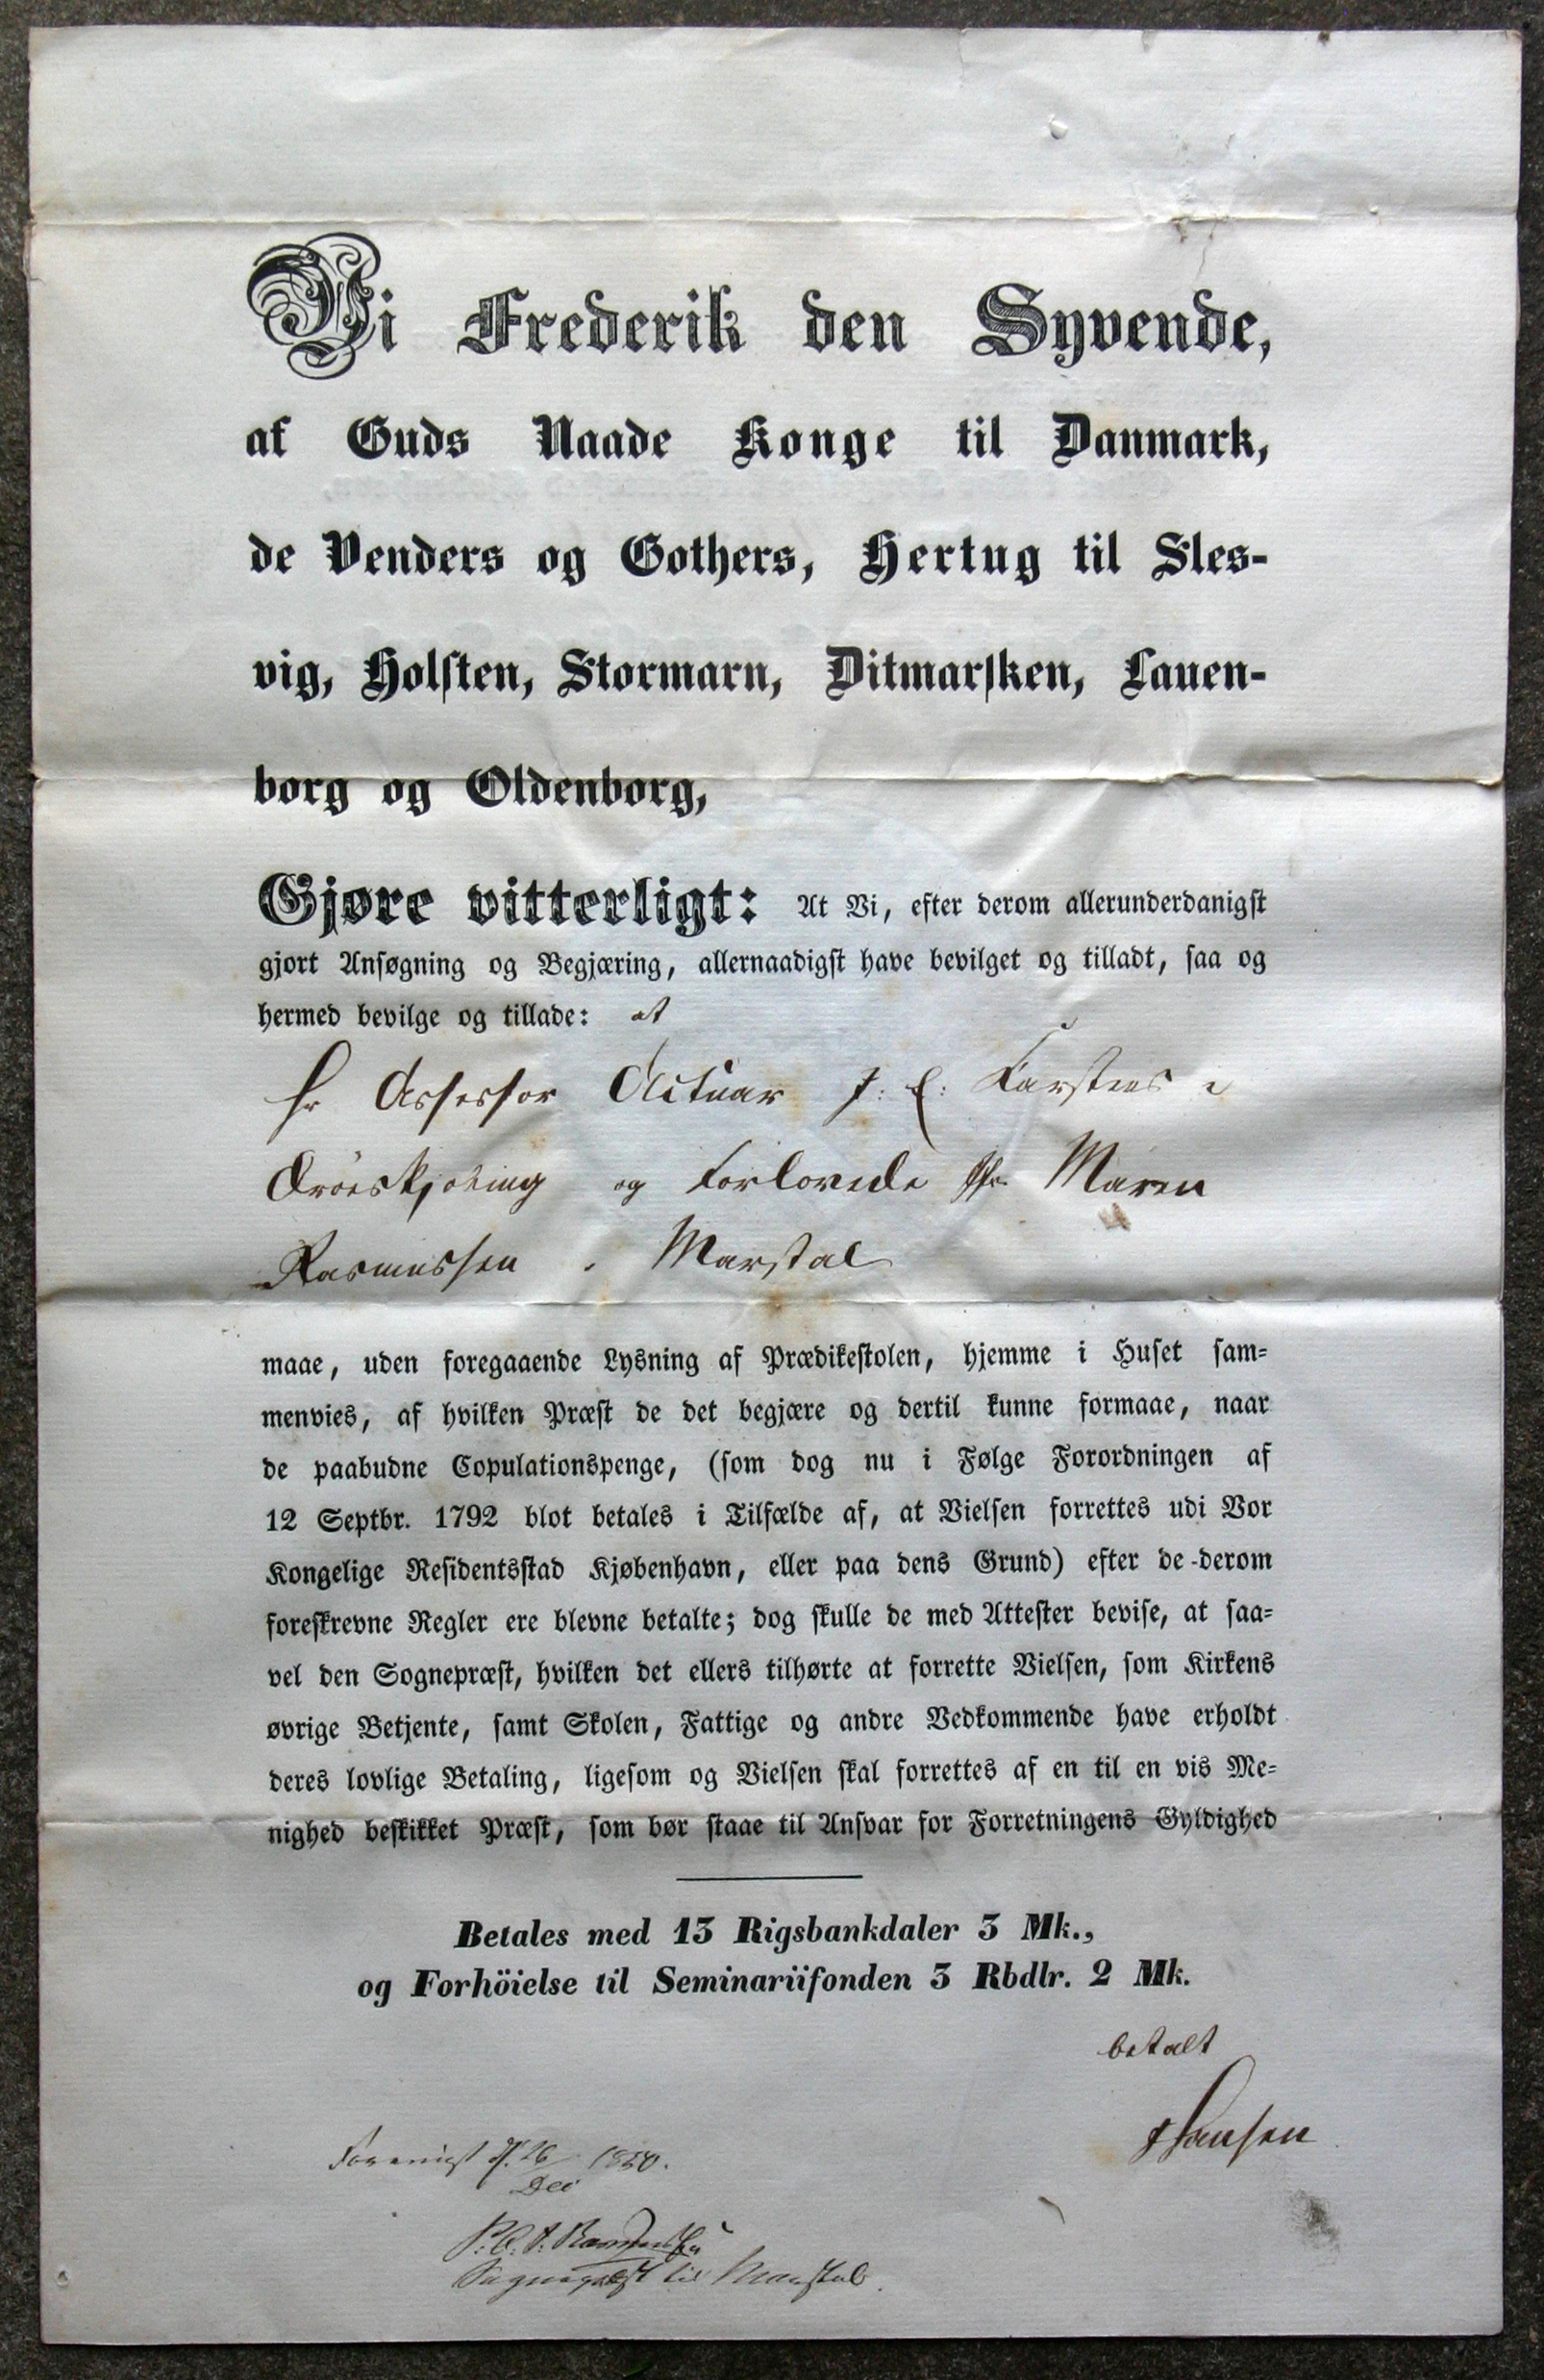 Vi Frederik den Syvende,
af Guds Naade Konge til Danmark,
de Venders og Gothers, Hertug til Sles-
vig, Holsten, Stormarn, Ditmarsken, Lauen-
borg og Oldenborg,
Gjøre vitterligt: At Vi, efter derom allerunderdanigst
gjort Ansøgning og Begjæring, allernaadigst have bevilget og tilladt, saa og
hermed bevilge og tillade: at
Hr Assessor Actuar J: C: Karstens i
Ærøeskjøbing og Forlovede Jfr. Maren
Rasmussen i Marstal
maae, uden foregaaende Lysning af Prædikestolen, hjemme i Huset sam-
menvies, af hvilken Præst de det begjære og dertil kunne formaae, naar
de paabudne Copulationspenge, (som dog nu i Følge Forordningen af
12 Septbr. 1792 blot betales i Tilfælde af, at Vielsen forrettes udi Vor
Kongelige Residentsstad Kjøbenhavn, eller paa dens Grund) efter de derom
foreskrevne Regler ere blevne betalte; dog skulle de med Attester bevise, at saa-
vel den Sognepræst, hvilken det ellers tilhørte at forrette Vielsen, som Kirkens
øvrige Betjente, samt Skolen, Fattige og andre Vedkommende have erholdt
deres lovlige Betaling, ligesom og Vielsen skal forrettes af en til en vis Me-
nighed beskikket Præst, som bør staae til Ansvar for Forretningens Gyldighed
Betales med 13 Rigsbankdaler 3 Mk.,
og Forhöielse til Seminariifonden 3 Rbdlr. 2 Mk.
betalt
Hansen
d. 26 1850.
Dec
Sognepræst til Marstal.